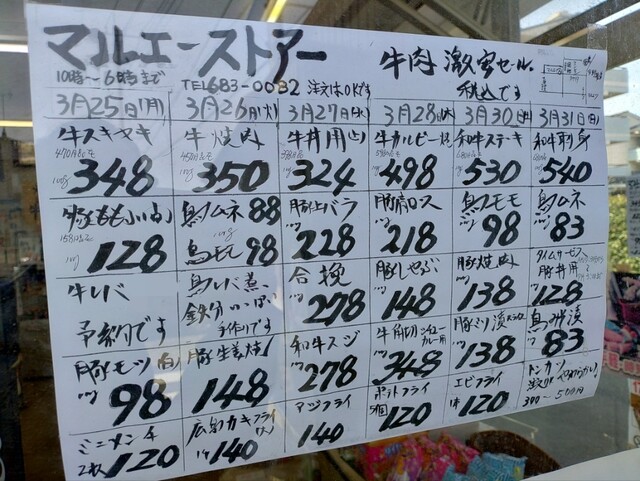 マルエーストアー
牛肉 激安セール
10時~6時まで
TEL683-0032 注文はOKです
税込です
3月25日(月) 3月26日(火) 3月27日(水) 3月28日(木) 3月30日(土) 3月31日(日)
牛スキヤキ 牛焼肉 牛丼用 牛カルビー焼 和牛ステーキ 和牛刺身
100g 348 350 324 498 530 540
豚ももスライス 鳥ムネ 88 豚上バラ 豚肩ロス 鳥モモ 鳥ムネ
128 鳥モモ 98 228 218 98 83
牛レバー 鳥レバ煮 合挽 豚しゃぶ 豚焼肉 タイムサービス
予約です 鉄分いっぱい 手作りです 278 148 138 豚丼用 128
豚モツ(白) 豚生姜焼 和牛スジ 牛角切 シチュー カレー用 豚ミソ漬 鳥みそ漬
98 148 278 348 138 83
ミニメンチ 広島カキフライ アジフライ ポテトフライ エビフライ トンカツ
2枚 120 140 140 5個 120 1本 120 激安 やわらかい。
300~500円